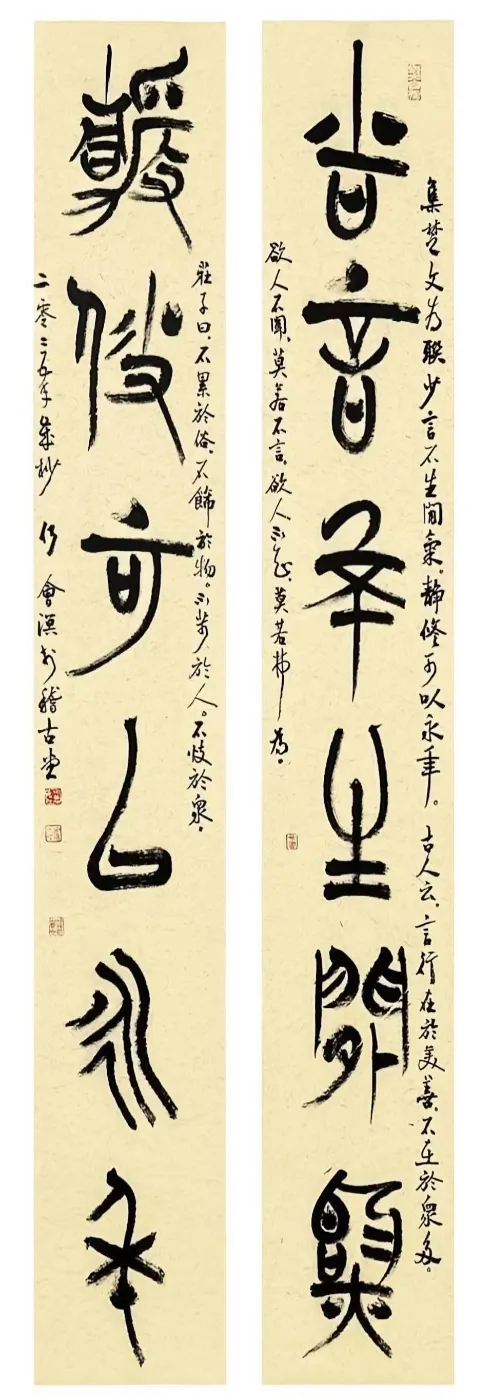 少言不生閒氣
靜修可以永年
集楚文為聯少言不生閒氣。靜修可以永年。古人云、言行在於美善、不在於衆多。
欲人不聞、莫若不言、欲人不知、莫若弗為。
莊子曰、不累於俗、不飾於物。不苟於人。不忮於衆。
二零二五年歲杪 會溟 稽古堂